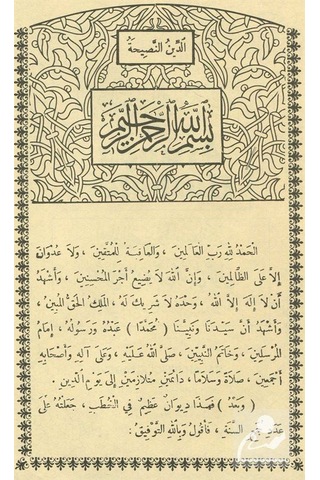 الدِّينُ النَّصِيحَةُ
بِسْمِ اللهِ الرَّحْمٰنِ الرَّحِيمِ
الْحَمْدُ لِلّٰهِ رَبِّ الْعَالَمِينَ ، وَالْعَاقِبَةُ لِلْمُتَّقِينَ ، وَلَا عُدْوَانَ
إِلَّا عَلَى الظَّالِمِينَ ، وَإِنَّ اللهَ لَا يُضِيعُ أَجْرَ الْمُحْسِنِينَ ، وَأَشْهَدُ
أَنْ لَا إِلٰهَ إِلَّا اللهُ ، وَحْدَهُ لَا شَرِيكَ لَهُ ، الْمَلِكُ الْحَقُّ الْمُبِينُ ،
وَأَشْهَدُ أَنَّ سَيِّدَنَا وَنَبِيَّنَا ( مُحَمَّدًا ) عَبْدُهُ وَرَسُولُهُ ، إِمَامُ
الْمُرْسَلِينَ ، وَخَاتَمُ النَّبِيِّينَ ، صَلَّى اللهُ عَلَيْهِ ، وَعَلَى آلِهِ وَأَصْحَابِهِ
أَجْمَعِينَ ، صَلَاةً وَسَلَامًا ، دَائِمَيْنِ مُتَلَازِمَيْنِ إِلَى يَوْمِ الدِّينِ .
( وَبَعْدُ ) فَهٰذَا دِيوَانٌ عَظِيمٌ فِي الْخُطَبِ ، جَعَلْتُهُ عَلَى
السَّنَةِ ، فَأَقُولُ وَبِاللهِ التَّوْفِيقُ :